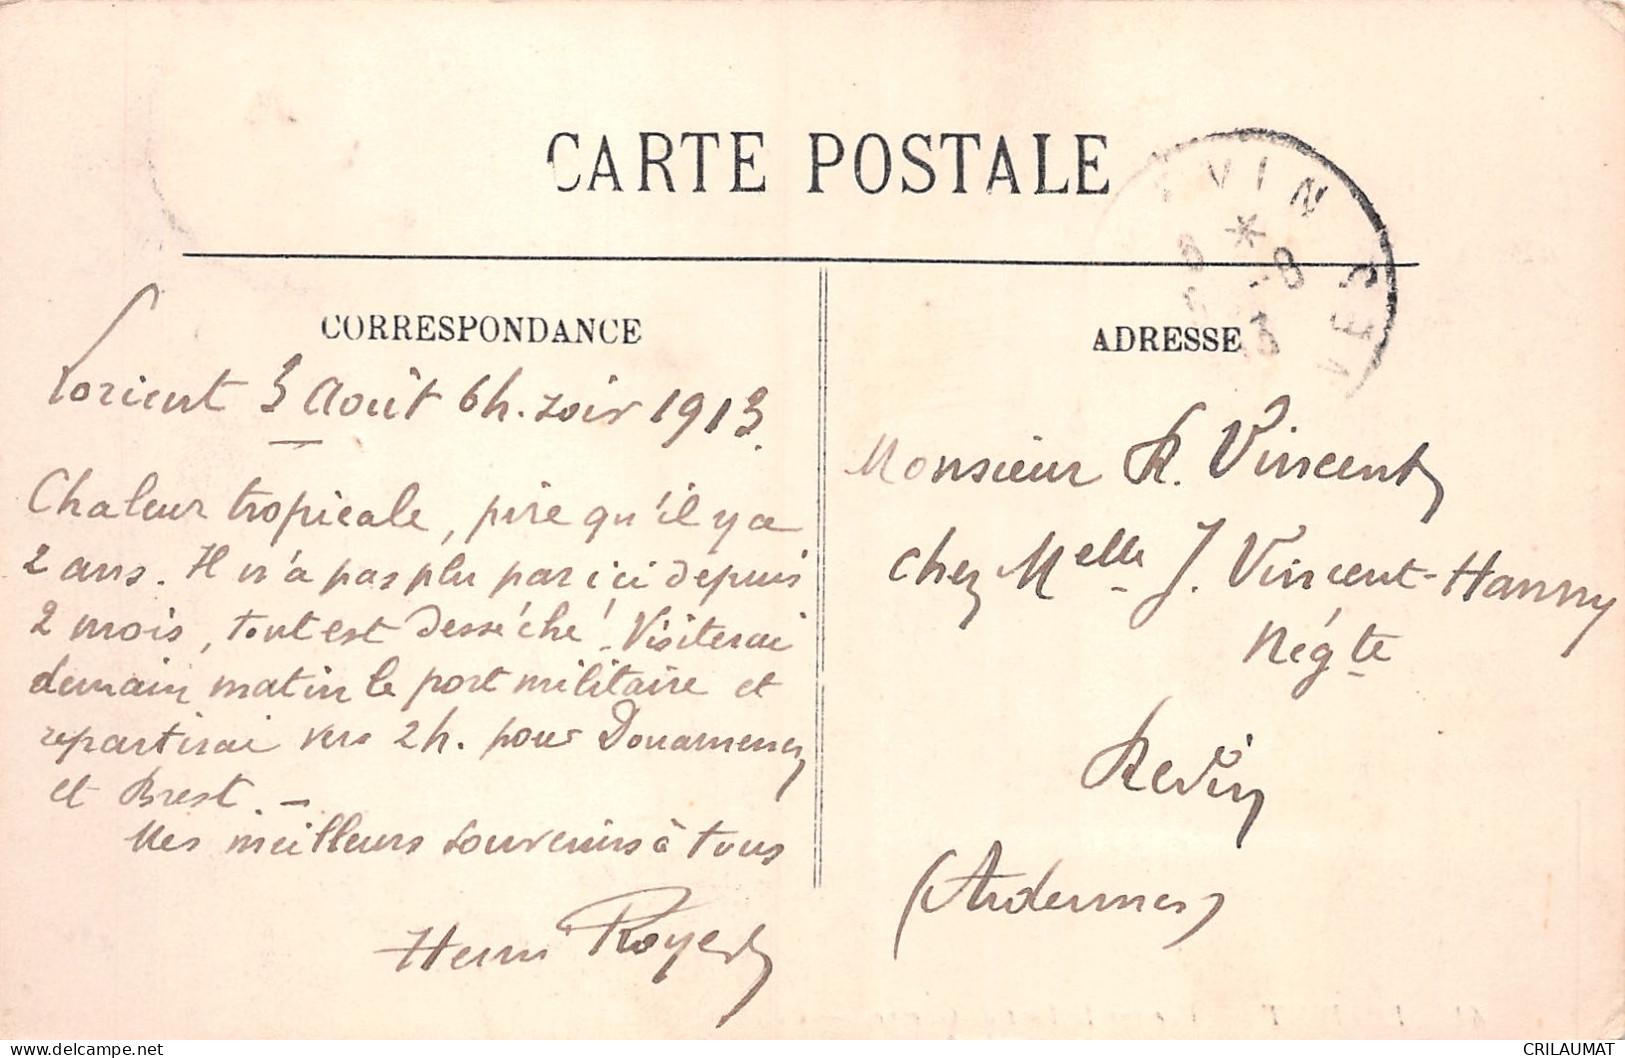 CARTE POSTALE
CORRESPONDANCE
Lorient 3 Août 6h. soir 1913.
Chaleur tropicale, pire qu'il y a
2 ans. Il n'a pas plu par ici depuis
2 mois, tout est desséché! Visiterai
demain matin le port militaire et
repartirai vers 2h. pour Douarnenez
et Brest. –
Mes meilleurs souvenirs à tous
Henri Royer
ADRESSE
Monsieur R. Vincent
chez Melle J. Vincent-Hanny
Négte
Revin
(Ardennes)
VIN
CRILAUMAT